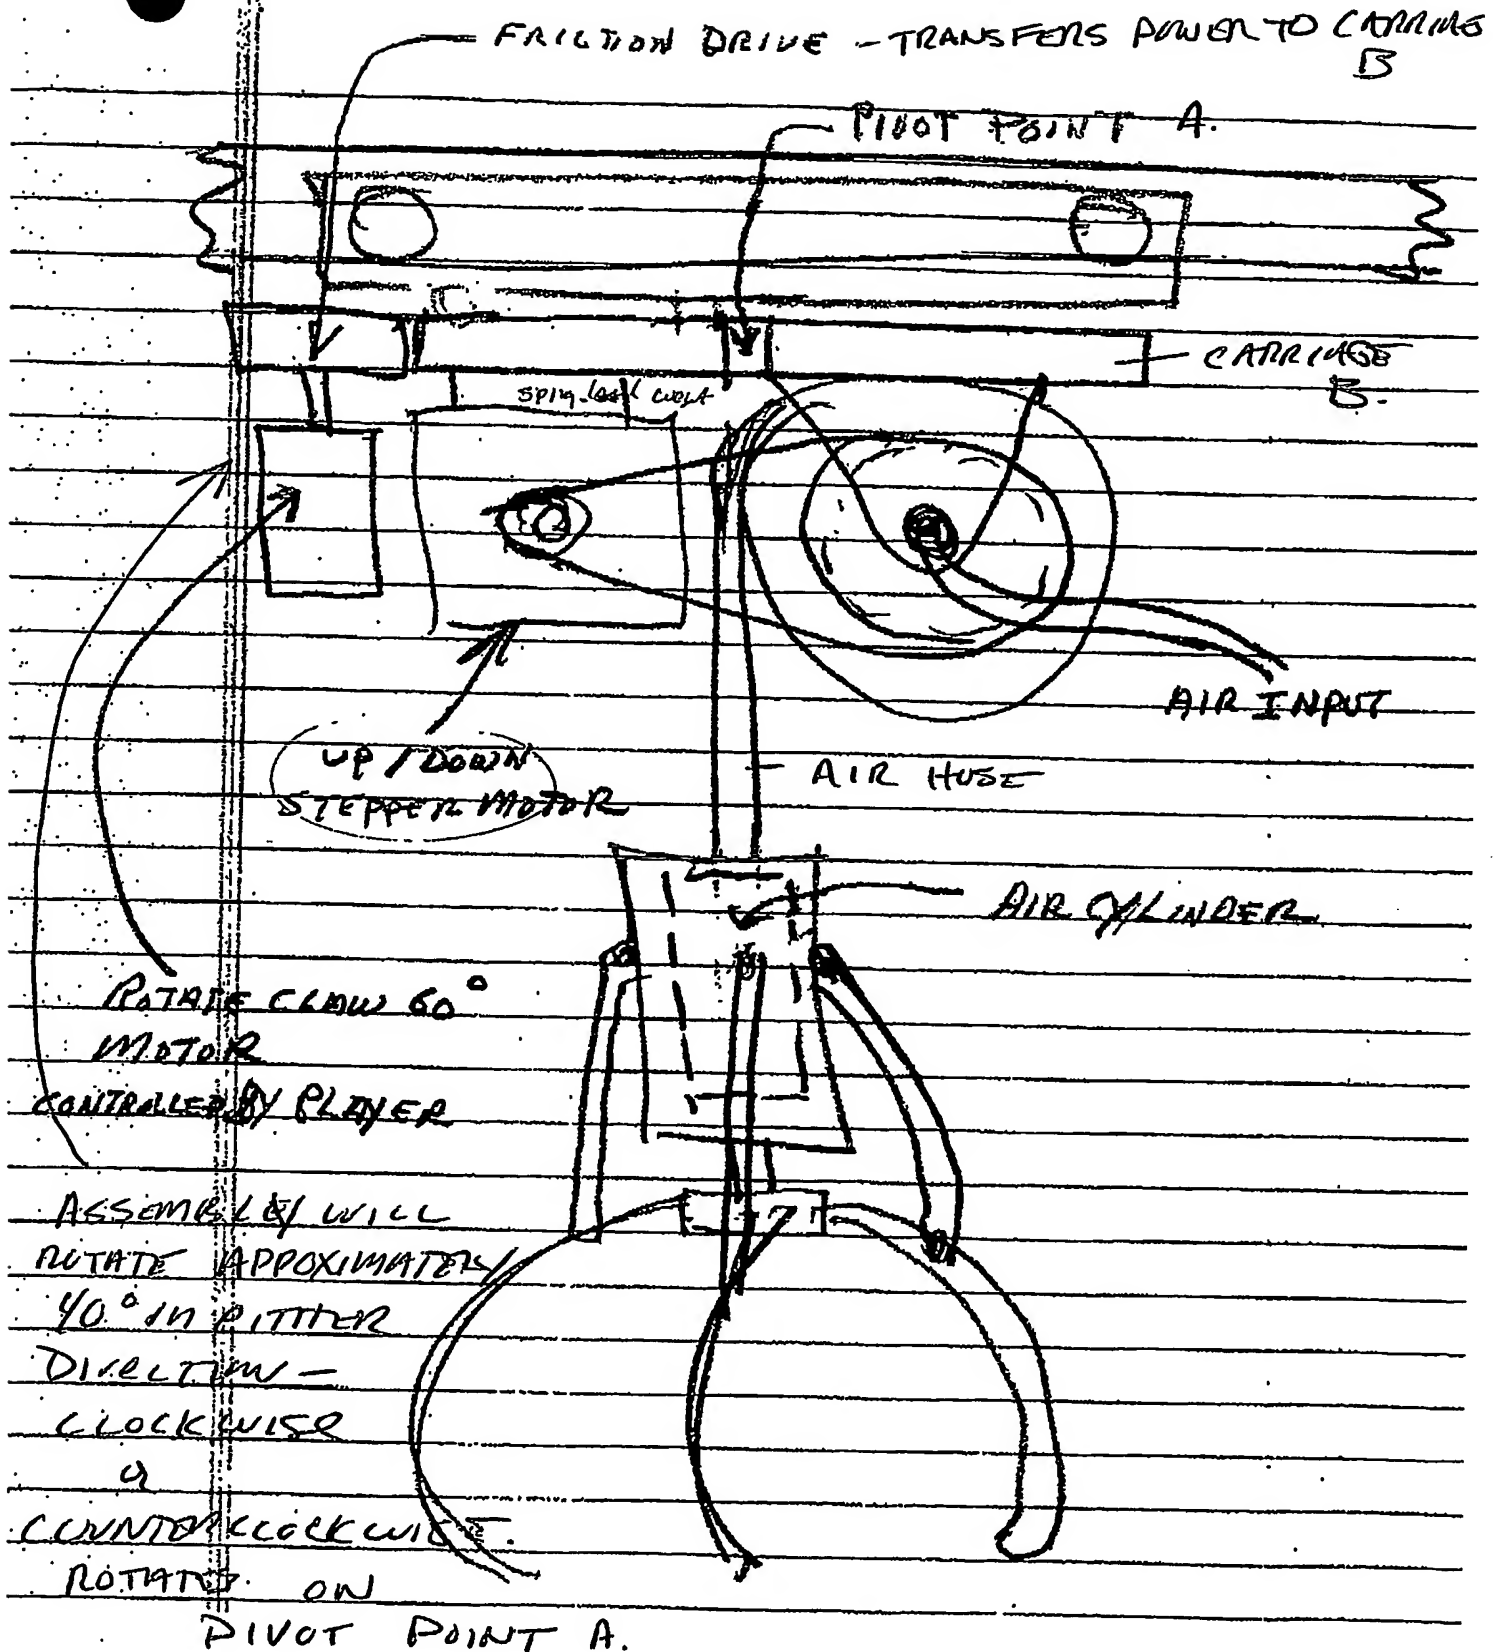 FRICTION DRIVE - TRANSFERS POWER TO CARRIAGE
B
PIVOT POINT A.
CARRIAGE
B.
AIR INPUT
UP / DOWN
STEPPER MOTOR
AIR HOSE
AIR CYLINDER
ROTATE CLAW 60°
MOTOR
CONTROLLED BY PLAYER
ASSEMBLEY WILL
ROTATE APPOXIMATELY
40° IN EITHER
DIRECTION -
CLOCKWISE
or
COUNTERCLOCKWISE.
ROTATES ON
PIVOT POINT A.